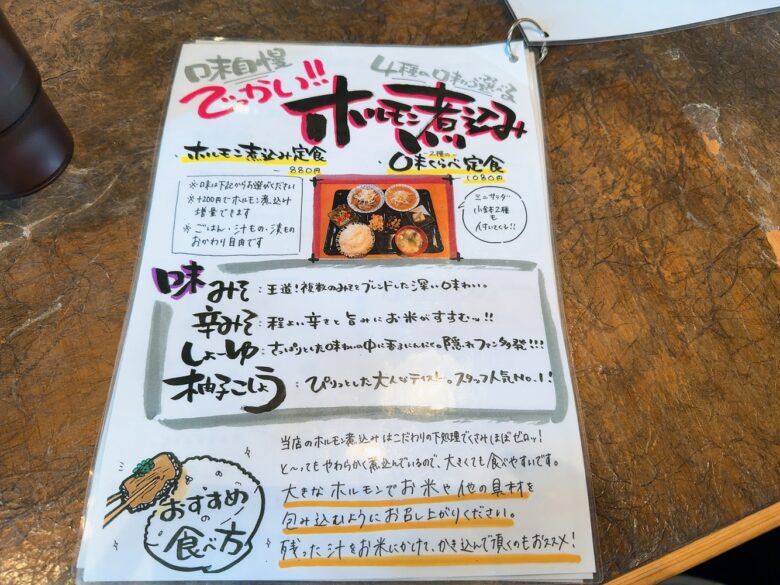 味自慢
4種の味から選べる
でっかい!!
ホルモン煮込み
・ホルモン煮込み定食
880円
・2種の味くらべ定食
1080円
※味は下記からお選びください
※+200円でホルモン煮込み
増量できます
※ごはん・汁もの・漬もの
おかわり自由です
ミニサラダ
小鉢2種
も
付いてくる!!
味
みそ:王道!複数のみそをブレンドした深い味わい。
辛みそ:程よい辛さと旨みにお米がすすむッ!!
しょーゆ:さっぱりとした味わいの中に香るにんにくで隠れファン多発!!!
柚子こしょう:ぴりっとした大人なテイスト。スタッフ人気No.1!
当店のホルモン煮込みはこだわりの下処理でくさみほぼゼロッ!
と〜ってもやわらかく煮込んでいるので、大きくても食べやすいです。
大きなホルモンでお米や他の具材を
包み込むようにお召し上がりください。
残った汁をお米にかけて、かき込んで頂くのもおススメ!
おすすめ
の
食べ方